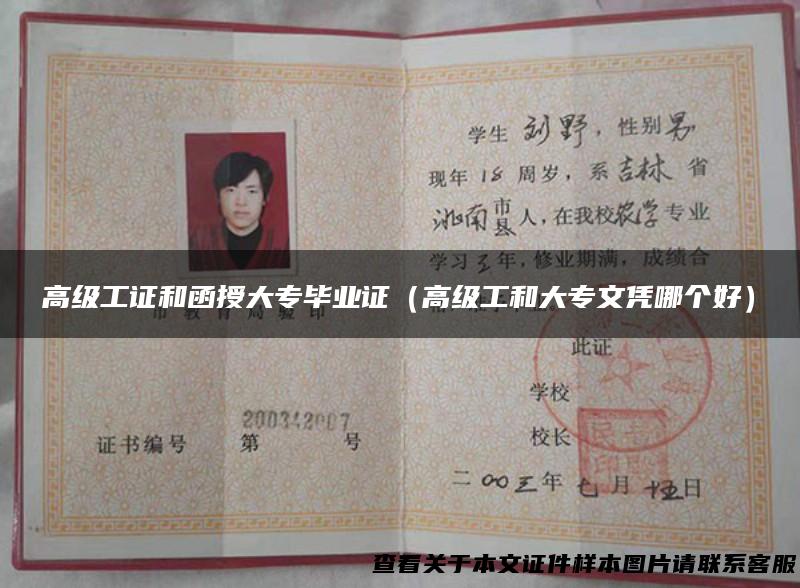 学生刘野，性别男
现年18周岁，系吉林省
洮南市县人，在我校农学专业
学习三年，修业期满，成绩合
高级工证和函授大专毕业证（高级工和大专文凭哪个好）
市教育局验印
此证
学校
校长
证书编号 第200342007号
二〇〇三年七月十五日
查看关于本文证件样本图片请联系客服